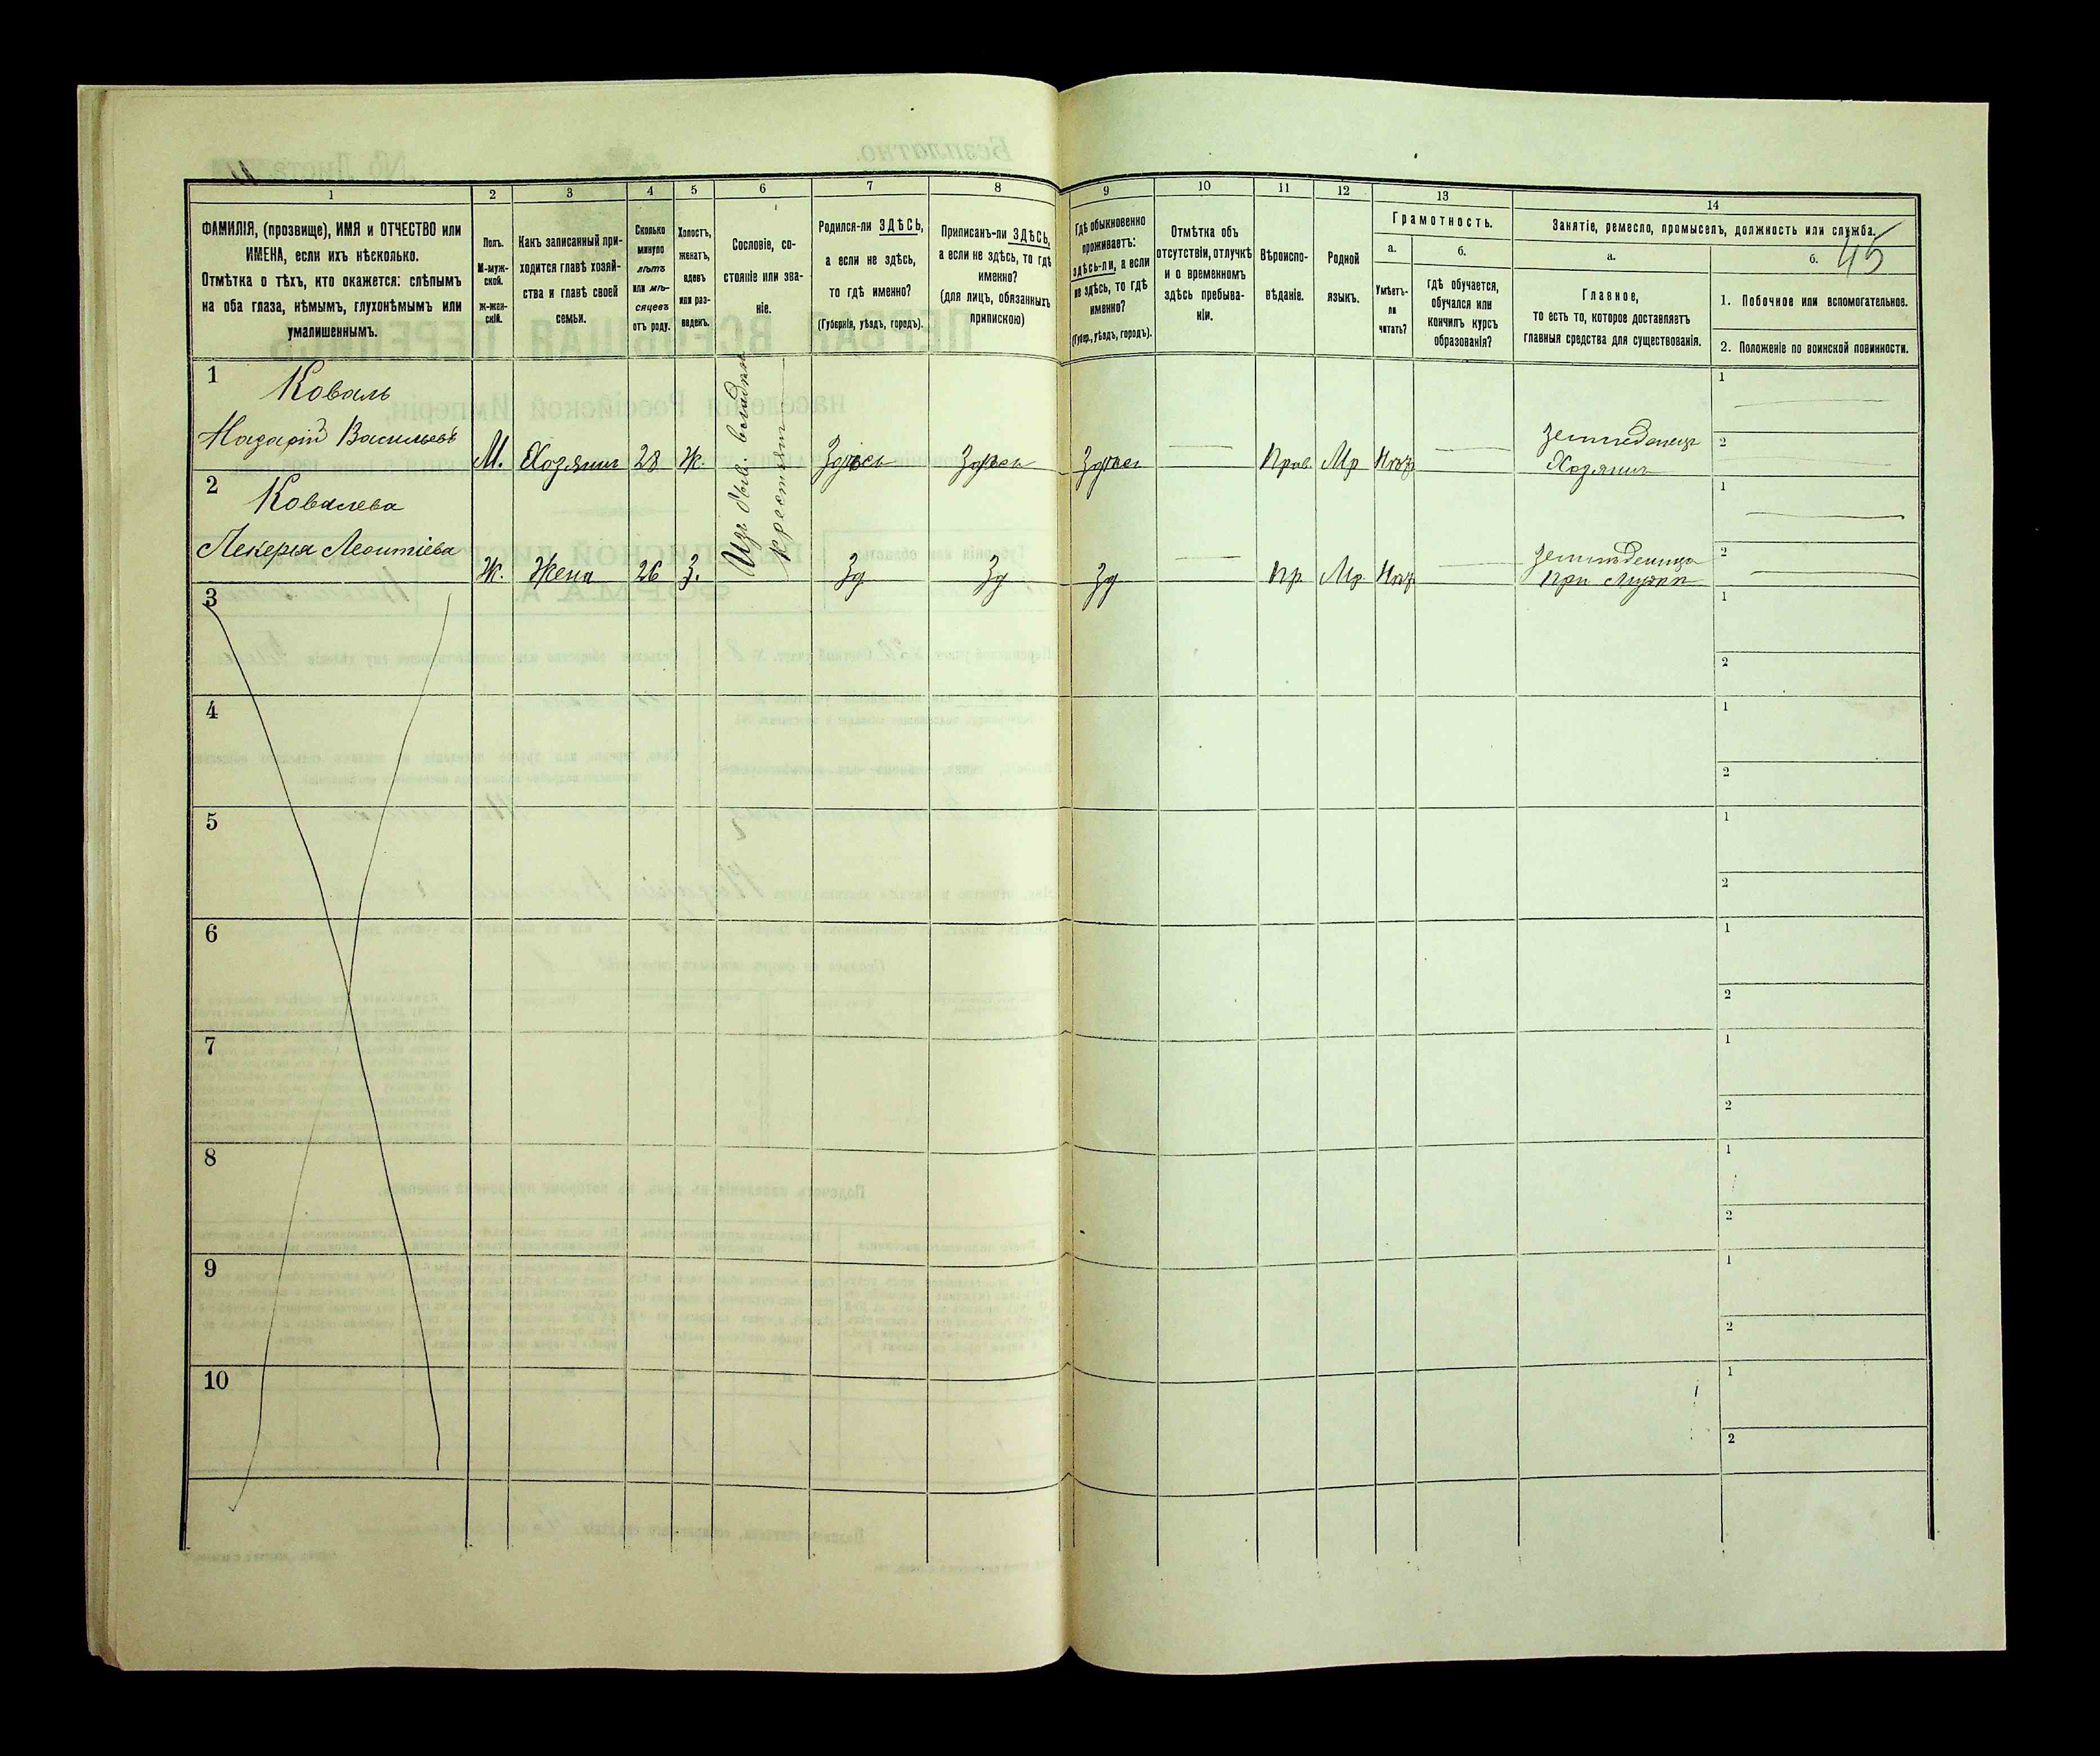 1
2
3
4
5
6
7
8
9
10
11
12
13
14
ФАМИЛІЯ, (прозвище), ИМЯ и ОТЧЕСТВО или
ИМЕНА, если ихъ нѣсколько.
Отмѣтка о тѣхъ, кто окажется: слѣпымъ
на оба глаза, нѣмымъ, глухонѣмымъ или
умалишеннымъ.
Полъ.
М-муж-
ской.
Ж-жен-
скій.
Какъ записанный при-
ходится главѣ хозяй-
ства и главѣ своей
семьи.
Сколько
минуло
лѣтъ
или мѣ-
сяцевъ
отъ роду.
Холостъ,
женатъ,
вдовъ
или раз-
веденъ.
Сословіе, со-
стояніе или зва-
ніе.
Родился-ли ЗДѢСЬ,
а если не здѣсь,
то гдѣ именно?
(Губернія, уѣздъ, городъ).
Приписанъ-ли ЗДѢСЬ,
а если не здѣсь, то гдѣ
именно?
(для лицъ, обязанныхъ
припискою)
Гдѣ обыкновенно
проживаетъ:
здѣсь-ли, а если
не здѣсь, то гдѣ
именно?
(Губер., уѣздъ, городъ).
Отмѣтка объ
отсутствіи, отлучкѣ
и о временномъ
здѣсь пребыва-
ніи.
Вѣроиспо-
вѣданіе.
Родной
языкъ.
Грамотность.
а.
Умѣетъ-
ли
читать?
б.
гдѣ обучается,
обучался или
кончилъ курсъ
образованія?
Занятіе, ремесло, промыселъ, должность или служба.
45
а.
Главное,
то есть то, которое доставляетъ
главныя средства для существованія.
б.
1. Побочное или вспомогательное.
2. Положеніе по воинской повинности.
1
Коваль
Назарій Васильевъ
М. Хозяинъ 28 Ж. Здѣсь Здѣсь Здѣсь Прав. Мр
Земледѣлецъ
Хозяинъ
1
2
Изъ быв. владѣл.
крестьянъ
2
Ковалева
Лекерія Леонтіева
Ж. Жена 26 З. Зд Зд Зд Пр. Мр.
при мужѣ
1
2
3
1
2
4
1
2
5
1
2
6
1
2
7
1
2
8
1
2
9
1
2
10
1
2